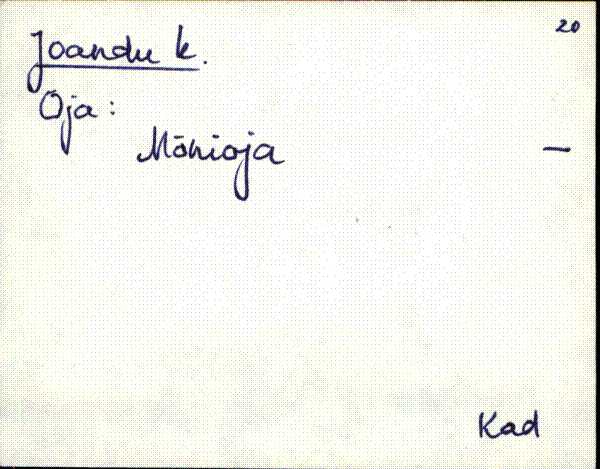 20
Joandu k.
Oja:
Mõnioja —
Kad